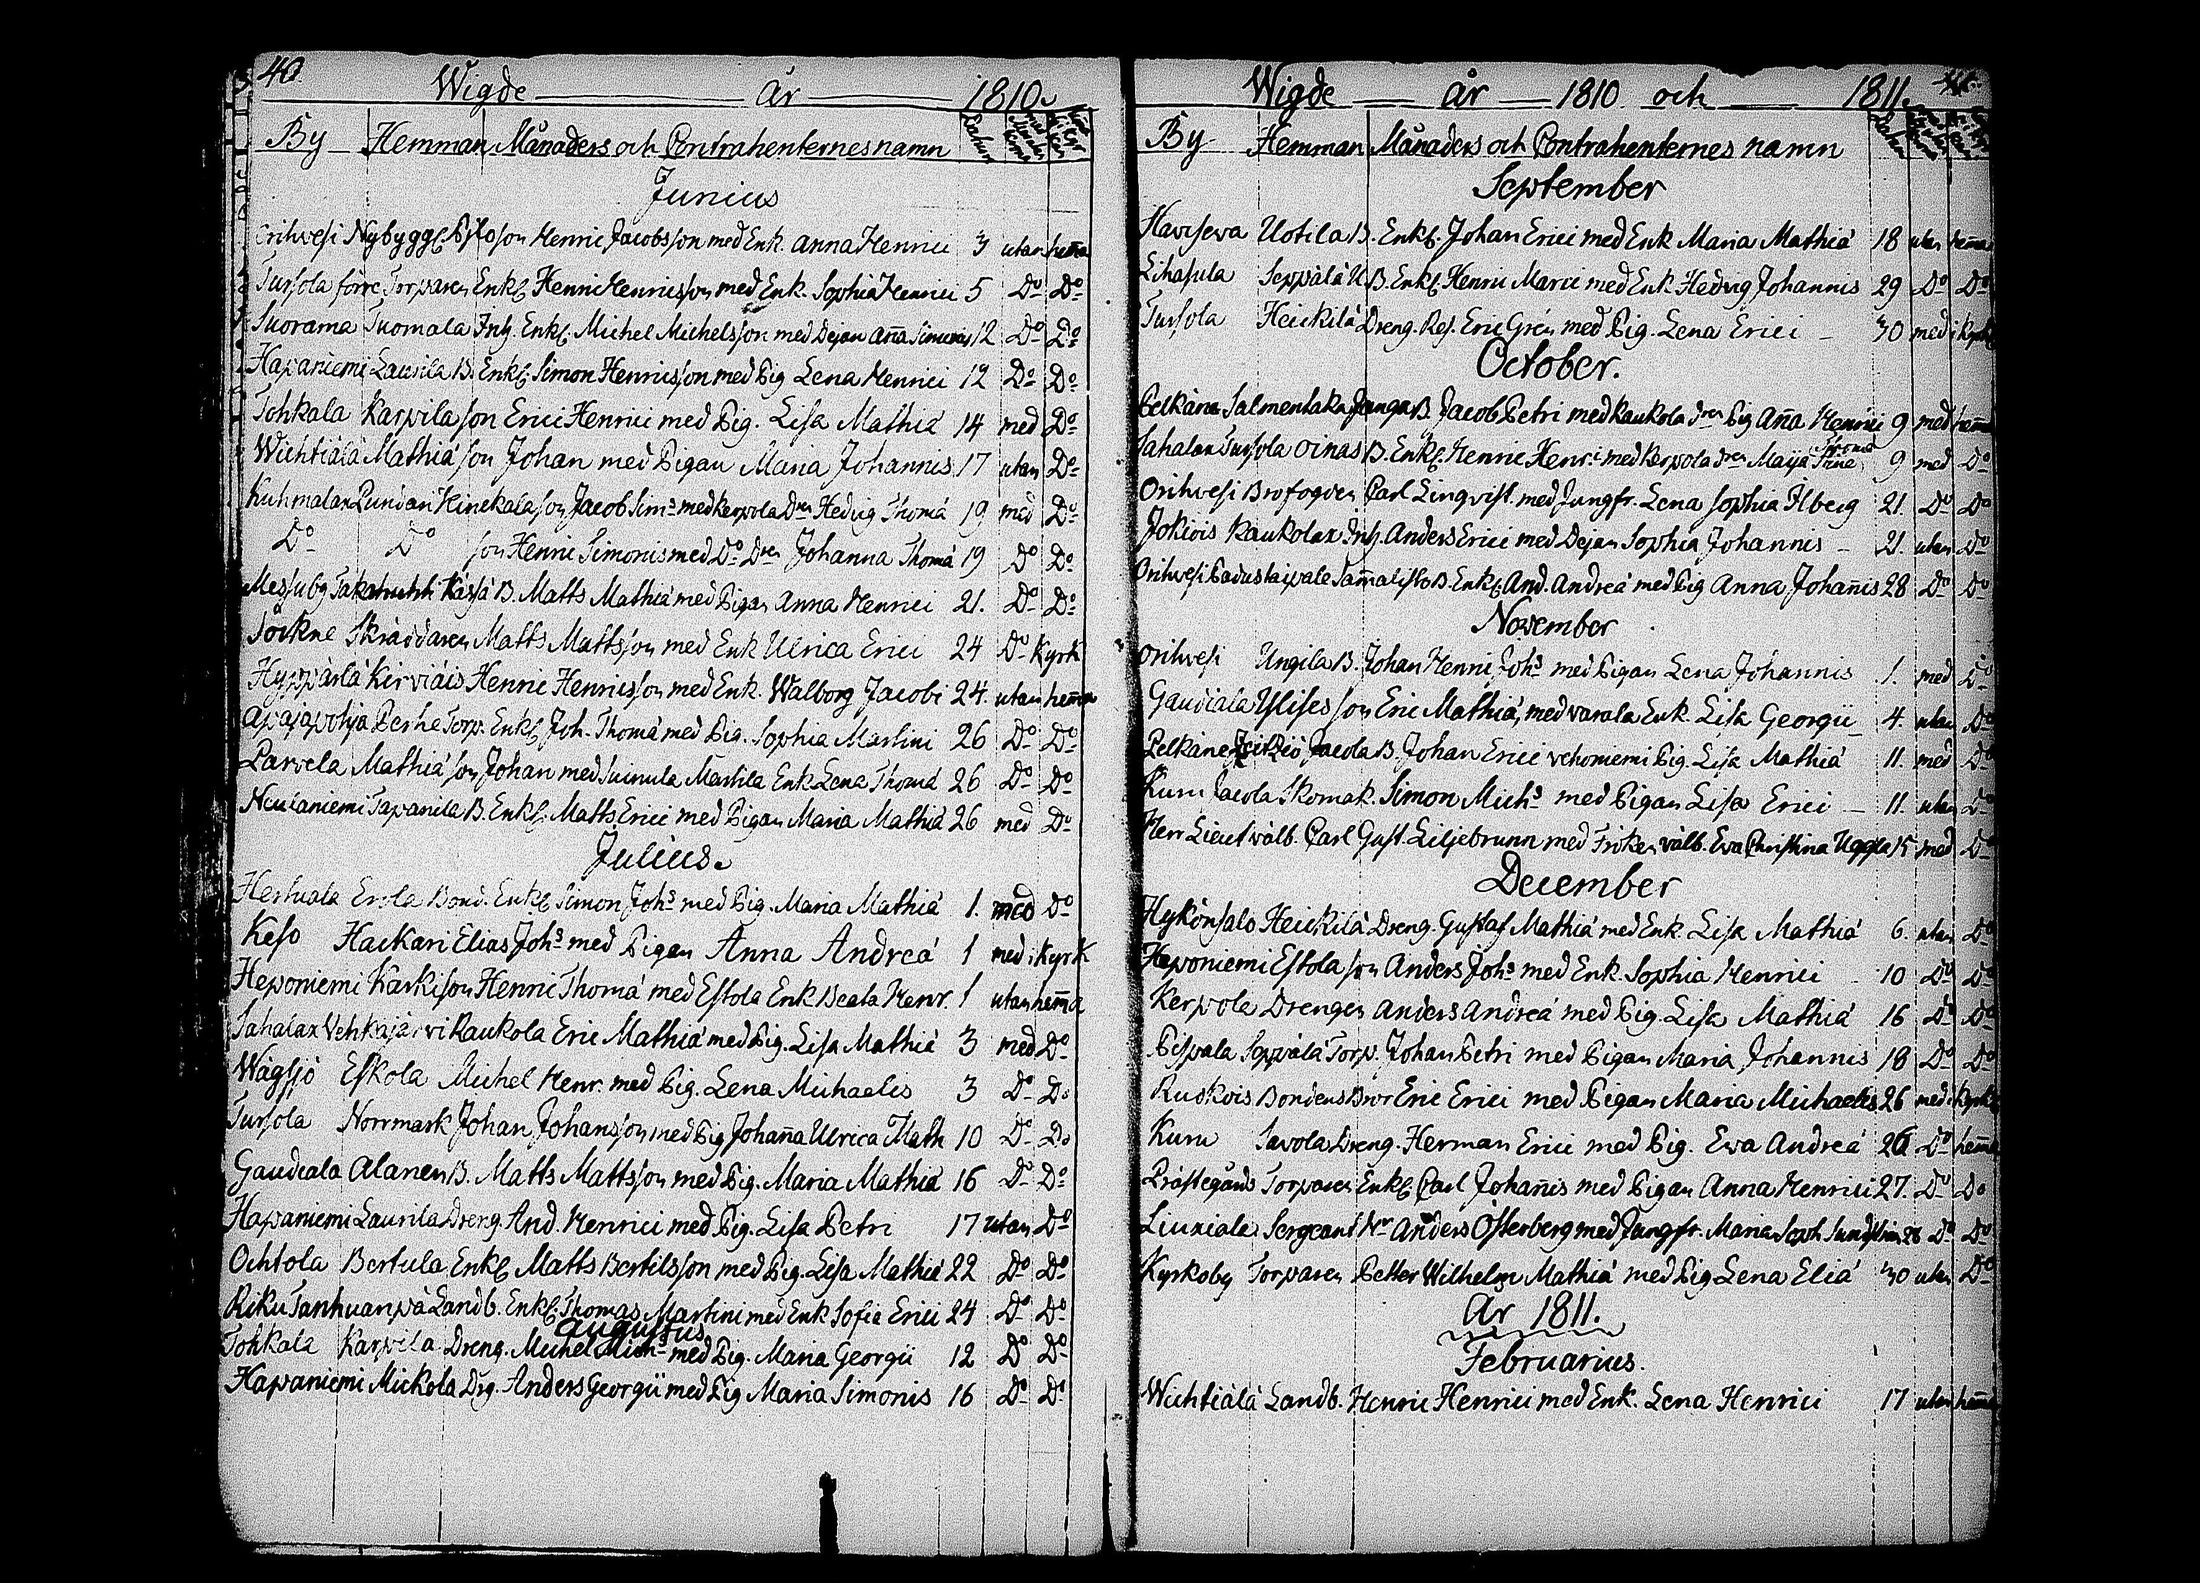 40.
Wigde År 1810.
By Hemman Månaders och Contrahenternes namn Datum
Junius
Orihvesi Nybygg. son Henric Jacobsson med Enk. Anna Henrici 3 utan hema
Tursola förre Torparen Enkl. Henric Henricsson med Enk. Sophia Henrici 5 Do Do
Suorama Tuomala Inh. Enkl. Michel Michelsson med Dejan Aña Simonis 12 Do Do
Hapaniemi Laurila B. Enkl. Simon Henricsson med Pig Lena Henrici 12 Do Do
Tohkala Karpila son Erici Henrici med Pig. Lisa Mathiæ 14 med Do
Wichtiälä Mathiæ son Johan med Pigan Maria Johannis 17 utan Do
Kuhmalax Pundari Hinekala son Jacob Sim:s med Kerpola Dren Hedvig Thomæ 19 med Do
Do Do son Henric Simonis med Do Dren Johanna Thomæ 19 Do Do
Messuby Takahuhti Kässä B. Matts Mathiæ med Pigan Anna Henrici 21. Do Do
Töikne Skräddaren Matts Mattsson med Enk Ulrica Erici 24 Do Kyrk
Hyppärlä Kirviäis Henric Henricsson med Enk. Walborg Jacobi 24. utan hema
Apajapohja Perhe Torp. Enkl. Joh. Thomæ med Pig. Sophia Martini 26 Do Do
Parvela Mathiæ son Johan med Suinula Marttila Enk Lena Thomæ 26 Do Do
Neulaniemi Tapanila B. Enkl. Matts Erici med Pigan Maria Mathiæ 26 med Do
Julius.
Hertuala Erola Bond. Enkl. Simon Joh:s med Pig. Maria Mathiæ 1. med Do
Keso Hackari Elias Joh:s med Pigan Anna Andreæ 1 med i Kyrk
Heponiemi Karki son Henric Thomæ med Estola Enk Beata Henr. 1 utan hema
Sahalax Vehkajärvi Raukola Eric Mathiæ med Pig. Lisa Mathiæ 3 med Do
Wägsjö Eskola Michel Henr. med Pig. Lena Michaelis 3 Do Do
Tursola Norrmark Johan Johansson med Pig Johaña Ulrica Math 10 Do Do
Gaudiala Alanen B. Matts Mattsson med Pig. Maria Mathiæ 16 Do Do
Hapaniemi Laurila Dreng. And. Henrici med Pig. Lisa Petri 17 utan Do
Ochtola Bertula Enkl. Matts Bertilsson med Pig. Lisa Mathiæ 22 Do Do
Riku Tanhuanpä Landb. Enkl. Thomas Martini med Enk Sofia Erici 24 Do Do
Augustus
Tohkala Karpela Dreng. Michel Mich:s med Pig. Maria Georgii 12 Do Do
Hapaniemi Mickola Drg. Anders Georgii med Pig Maria Simonis 16 Do Do
Wigde År 1810 och 1811.
By Hemman Månaders och Contrahenternes namn
September
Haviseva Uotila B. Enkl. Johan Erici med Enk Maria Mathiæ 18 utan hema
Lihasula Seppälä U.B. Enkl. Henric Marci med Enk Hedvig Johannis 29 Do Do
Tursola Heickilä Dreng. Res. Eric Grén med Pig. Lena Erici 30 med i Kyrk
October.
Pelkäne Salmentaka Janga B. Jacob Petri med Raukola dren Pig Aña Henrici 9 med hema
Sahalax Tursola Oinas B. Enkl. Henric Henr:i med Kerpola dren Maija 9 med Do
Orihvesi Brofogden Carl Linqvist. med Jungfr. Lena Sophia Ilberg 21. Do Do
Jokiois Raukolax Inh. Anders Erici med Dejan Sophia Johannis 21. utan Do
Orihvesi Padustaipale Samalisto B. Enkl. And. Andreæ med Pig Anna Johañis 28 Do Do
November
Orihvesi Ungila B. Johan Henric Joh:s med Pigan Lena Johannis 1. med Do
Gaudiala Ylises son Eric Mathiæ, med varala Enk. Lisa Georgii 4. utan Do
Pelkäne Jacola B. Johan Erici vehoniemi Pig. Lisa Mathiæ 11. med Do
Kuru Jacola Skomak. Simon Mich:s med Pigan Lisa Erici 11. utan Do
Herr Lieut välb. Carl Gust. Liljebrunn med Fröken välb. Eva Christina Uggla 15 med Do
December
Hykönsalo Heickilä Dreng. Gustaf Mathiæ med Enk. Lisa Mathiæ 6. utan Do
Heponiemi Estola son Anders Joh:s med Enk. Sophia Henrici 10 Do Do
Kerpola Drengen Anders Andreæ med Pig. Lisa Mathiæ 16 Do Do
Pispala Seppälä Torp. Johan Petri med Pigan Maria Johannis 18 Do Do
Ruskois Bondens Bror Eric Erici med Pigan Maria Michaelis 26 med i Kyrk
Kuru Savola Dreng. Herman Erici med Pig. Eva Andreæ 26 Do hema
Prästegårds Torparen Enkl. Carl Johañis med Pigan Anna Henrici 27. Do Do
Liuxiala Sergeant Hr Anders Österberg med Jungfr. Maria Soph. 28 Do Do
Kyrkoby Torparen Petter Wilhelm Mathiæ med Pig Lena Eliæ 30 utan Do
År 1811.
Februarius.
Wichtiälä Landb. Henric Henrici med Enk. Lena Henrici 17 utan hema